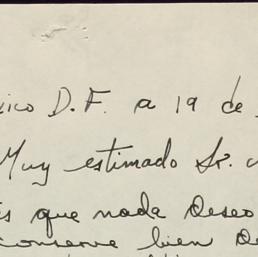 xico D.F. a 19 de
Muy estimado Sr.
que nada deseo
conserve bien de